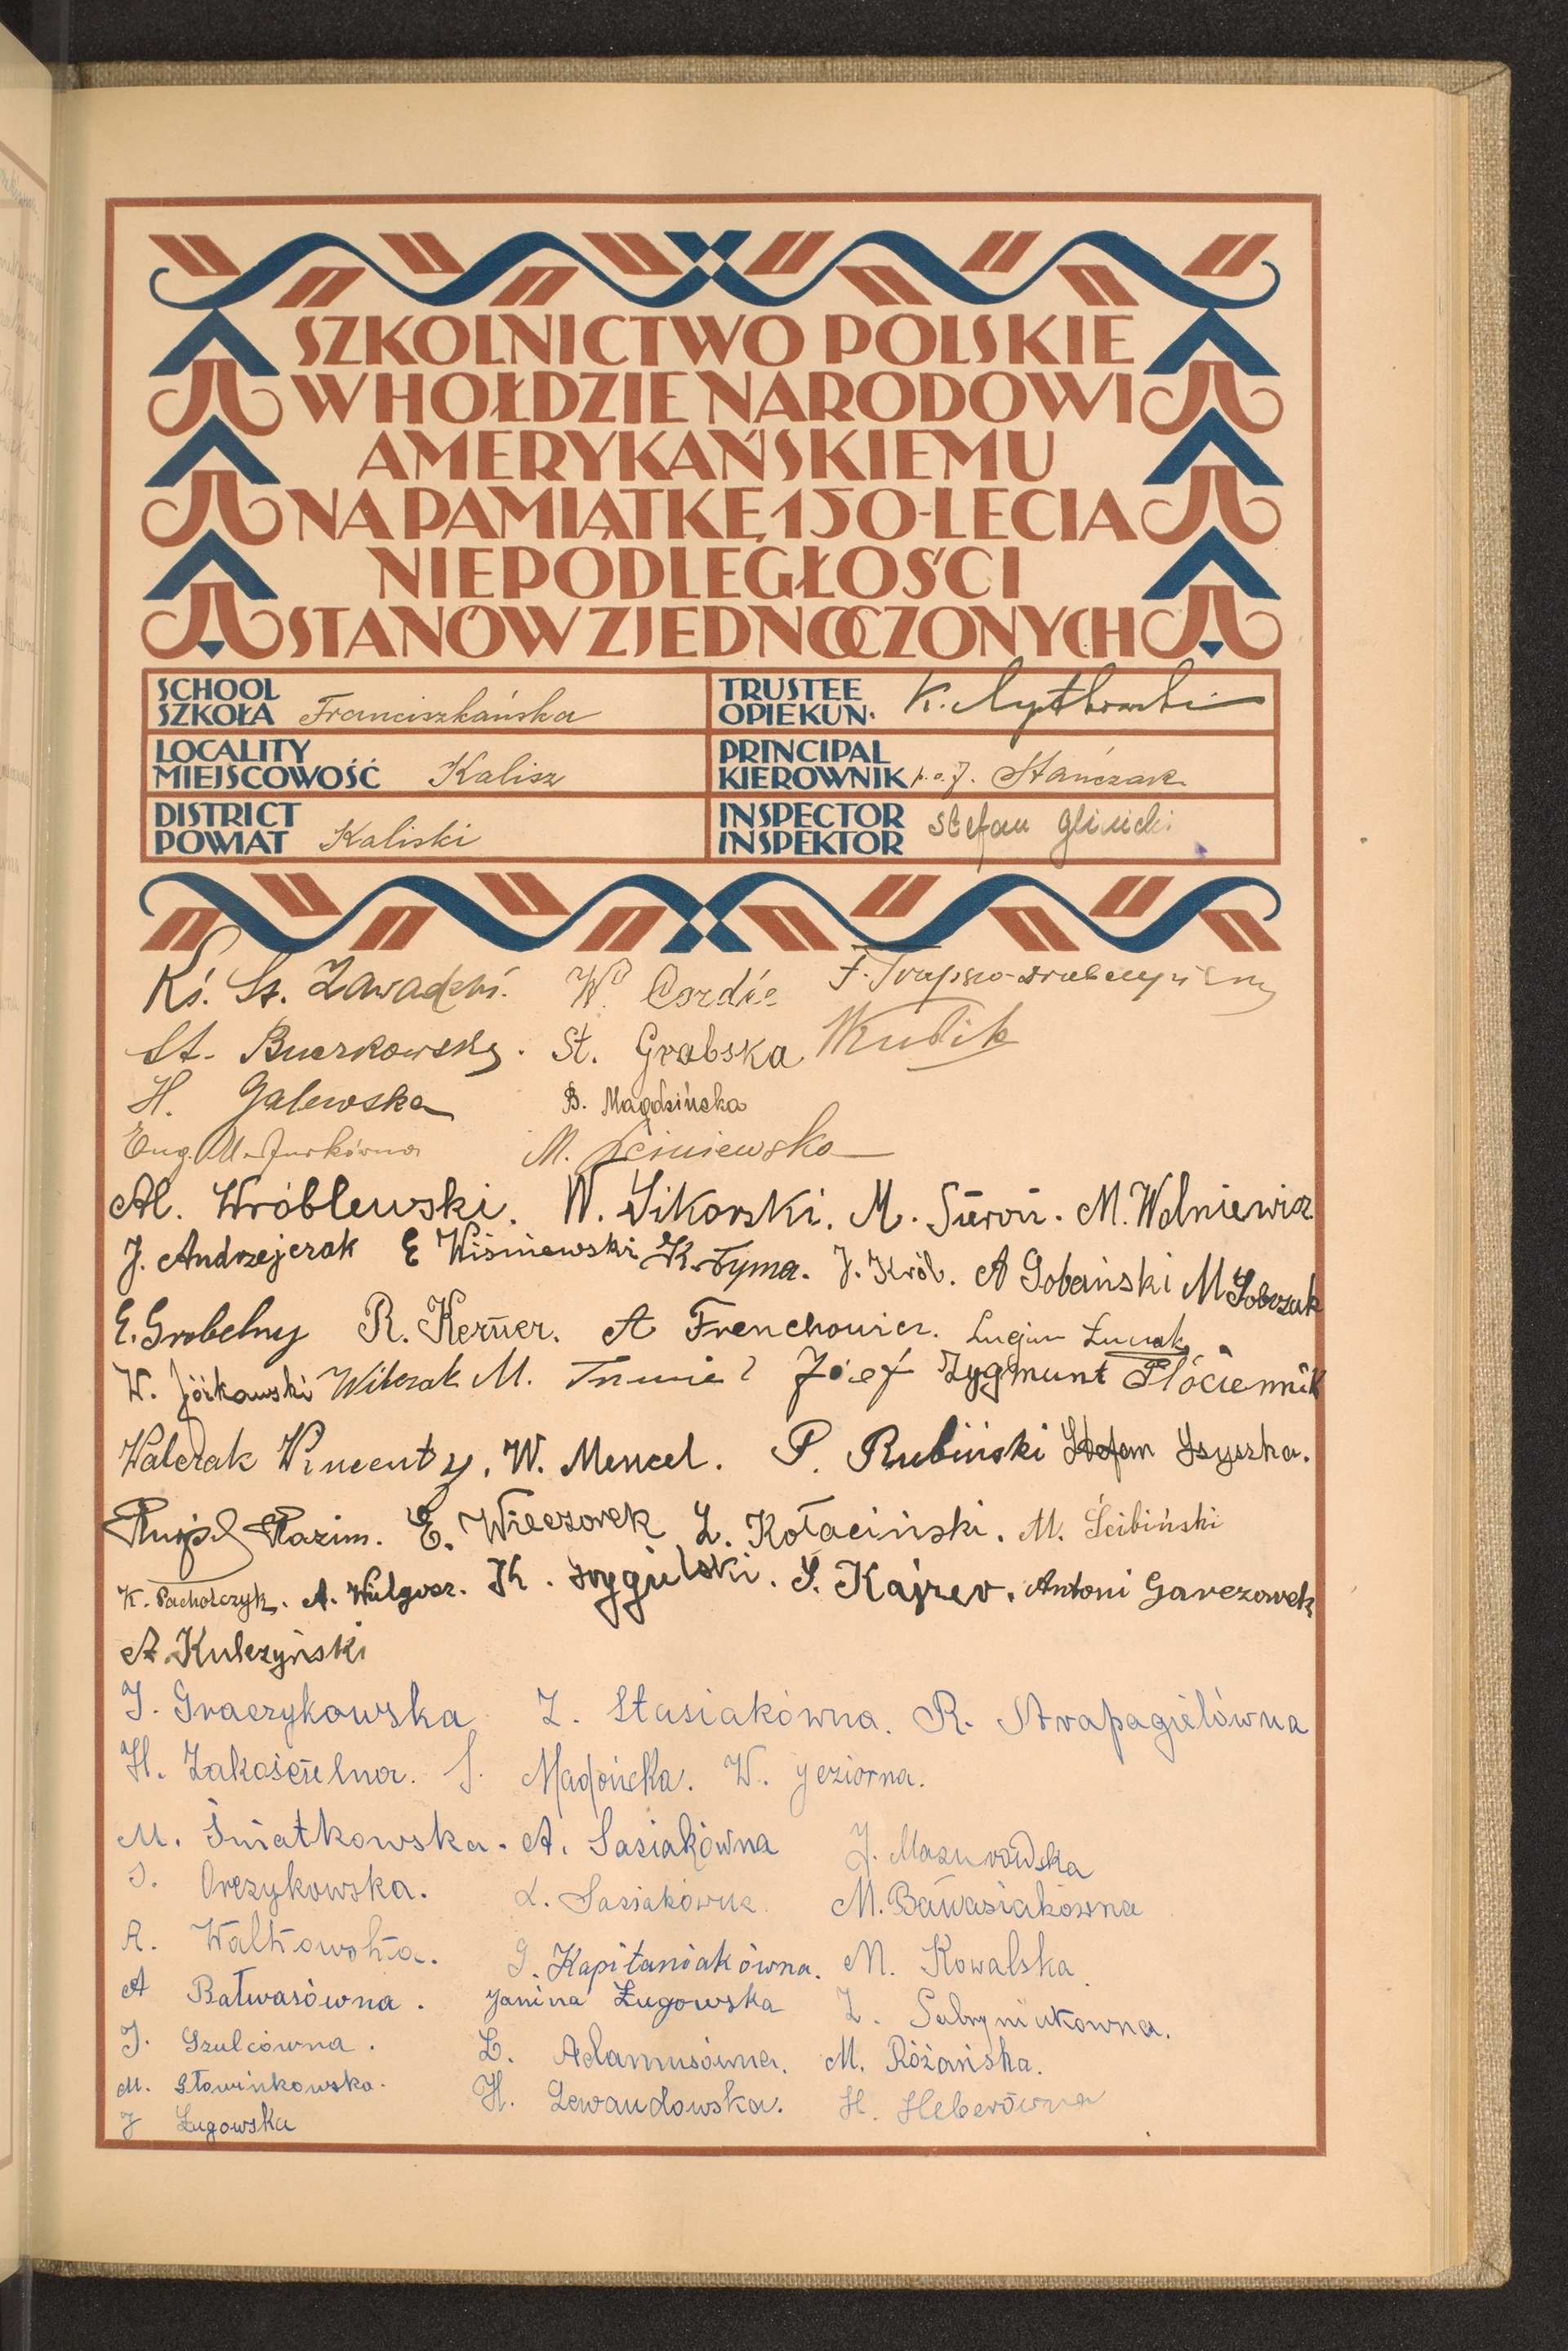 SZKOLNICTWO POLSKIE
W HOŁDZIE NARODOWI
AMERYKAŃSKIEMU
NA PAMIĄTKĘ 150-LECIA
NIEPODLEGŁOŚCI
STANÓW ZJEDNOCZONYCH
SCHOOL
SZKOŁA Franciszkańska
TRUSTEE
OPIEKUN. K.
LOCALITY
MIEJSCOWOŚĆ Kalisz
PRINCIPAL
KIEROWNIK p.o. J. Stańczak
DISTRICT
POWIAT Kaliski
INSPECTOR
INSPEKTOR Stefan Glinicki
Ks. St. Zawadzki. W.
St. St. Grabska Kubik
H. Galewska B. Magdzińska
Eug. M. Jurkówna M. Leśniewska
Al. Wróblewski. W. Sikorski. M. M. Wolniewicz
J. Andrzejczak E Wiśniewski K. Tyma. J. Król. A Sobański M Sobczak
E. Grobelny R. Kerner. A Frenchowicz.
W. Witczak M. Józef Zygmunt Płóciennik
Walczak Wincenty. W. Mencel. P. Rubiński Stefan Szyszka.
Kazim. E. Wieczorek Z. Kołaciński. M. Ścibiński
K. Pacholczyk. A. Wulgosz. K. S. Kajzer. Antoni Garczarek
A. Kulczyński
J. Graczykowska Z. Stasiakówna. R. Strapagielówna
H. Zakościelna. S. W. Jeziorna.
M. Świątkowska. A. Sasiakówna J. Mazurowska
S. Orczykowska. L. Sasiakówna. M. Bawasiakówna
A. Walkowska. G. Kapitaniakówna. M. Kowalska.
A Bałwasówna. Janina Ługowska Z.
J. Szulcówna. Z. Adamusówna. M. Różańska.
M. Słowinkowska. H. Lewandowska. H. Heberówna
J Ługowska